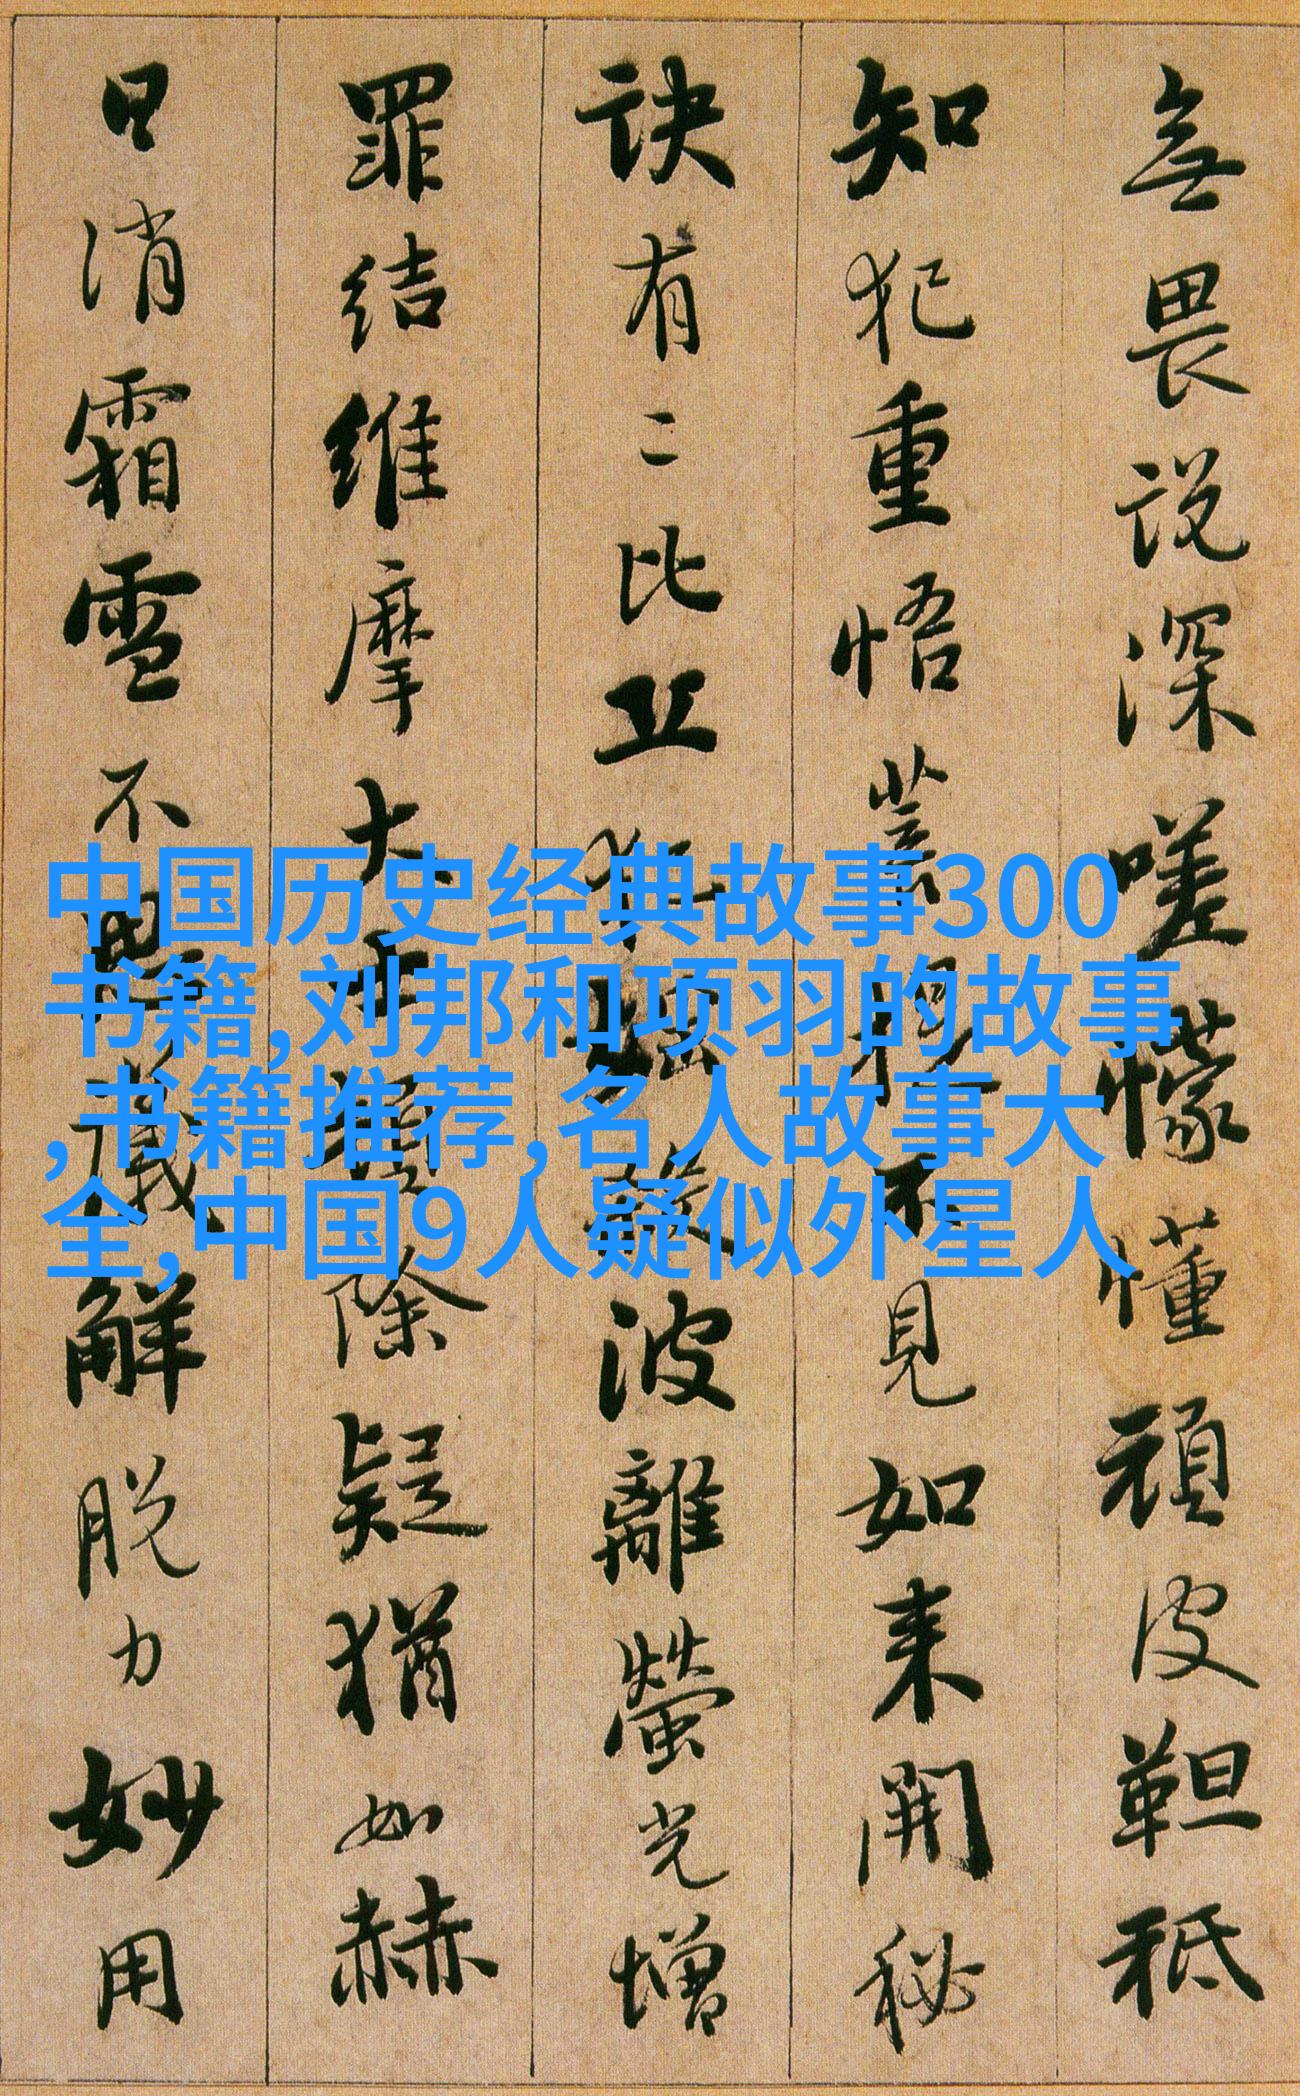 無畏説深嗟懞懂頑皮靼秪
知犯重悟菩提不見如来開秘
訣有二比丘犯婬殺波離螢光增
罪結維摩大士頓除疑猶如赫
日消霜雪不思議解脱力妙用
中国历史经典故事300
书籍,刘邦和项羽的故事
,书籍推荐,名人故事大
全,中国9人疑似外星人